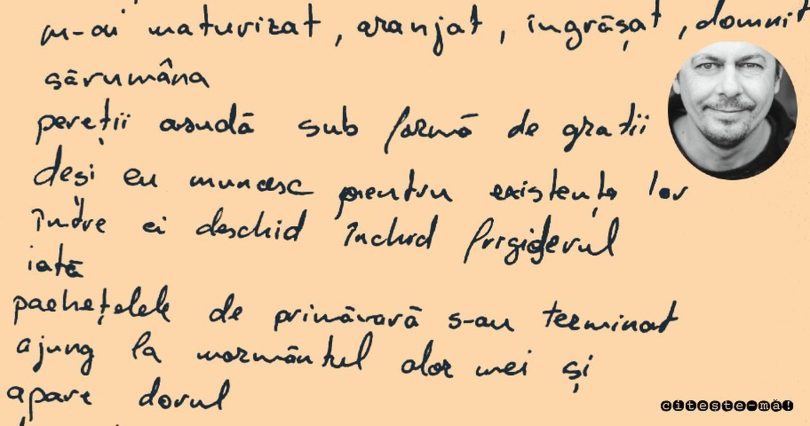 m-ai maturizat, aranjat, îngrășat, domnit
sărumâna
pereții asudă sub formă de gratii
deși eu muncesc pentru existența lor
între ei deschid închid frigiderul
iată
pachețelele de primăvară s-au terminat
ajung la mormântul alor mei și
apare dorul
citește-mă!